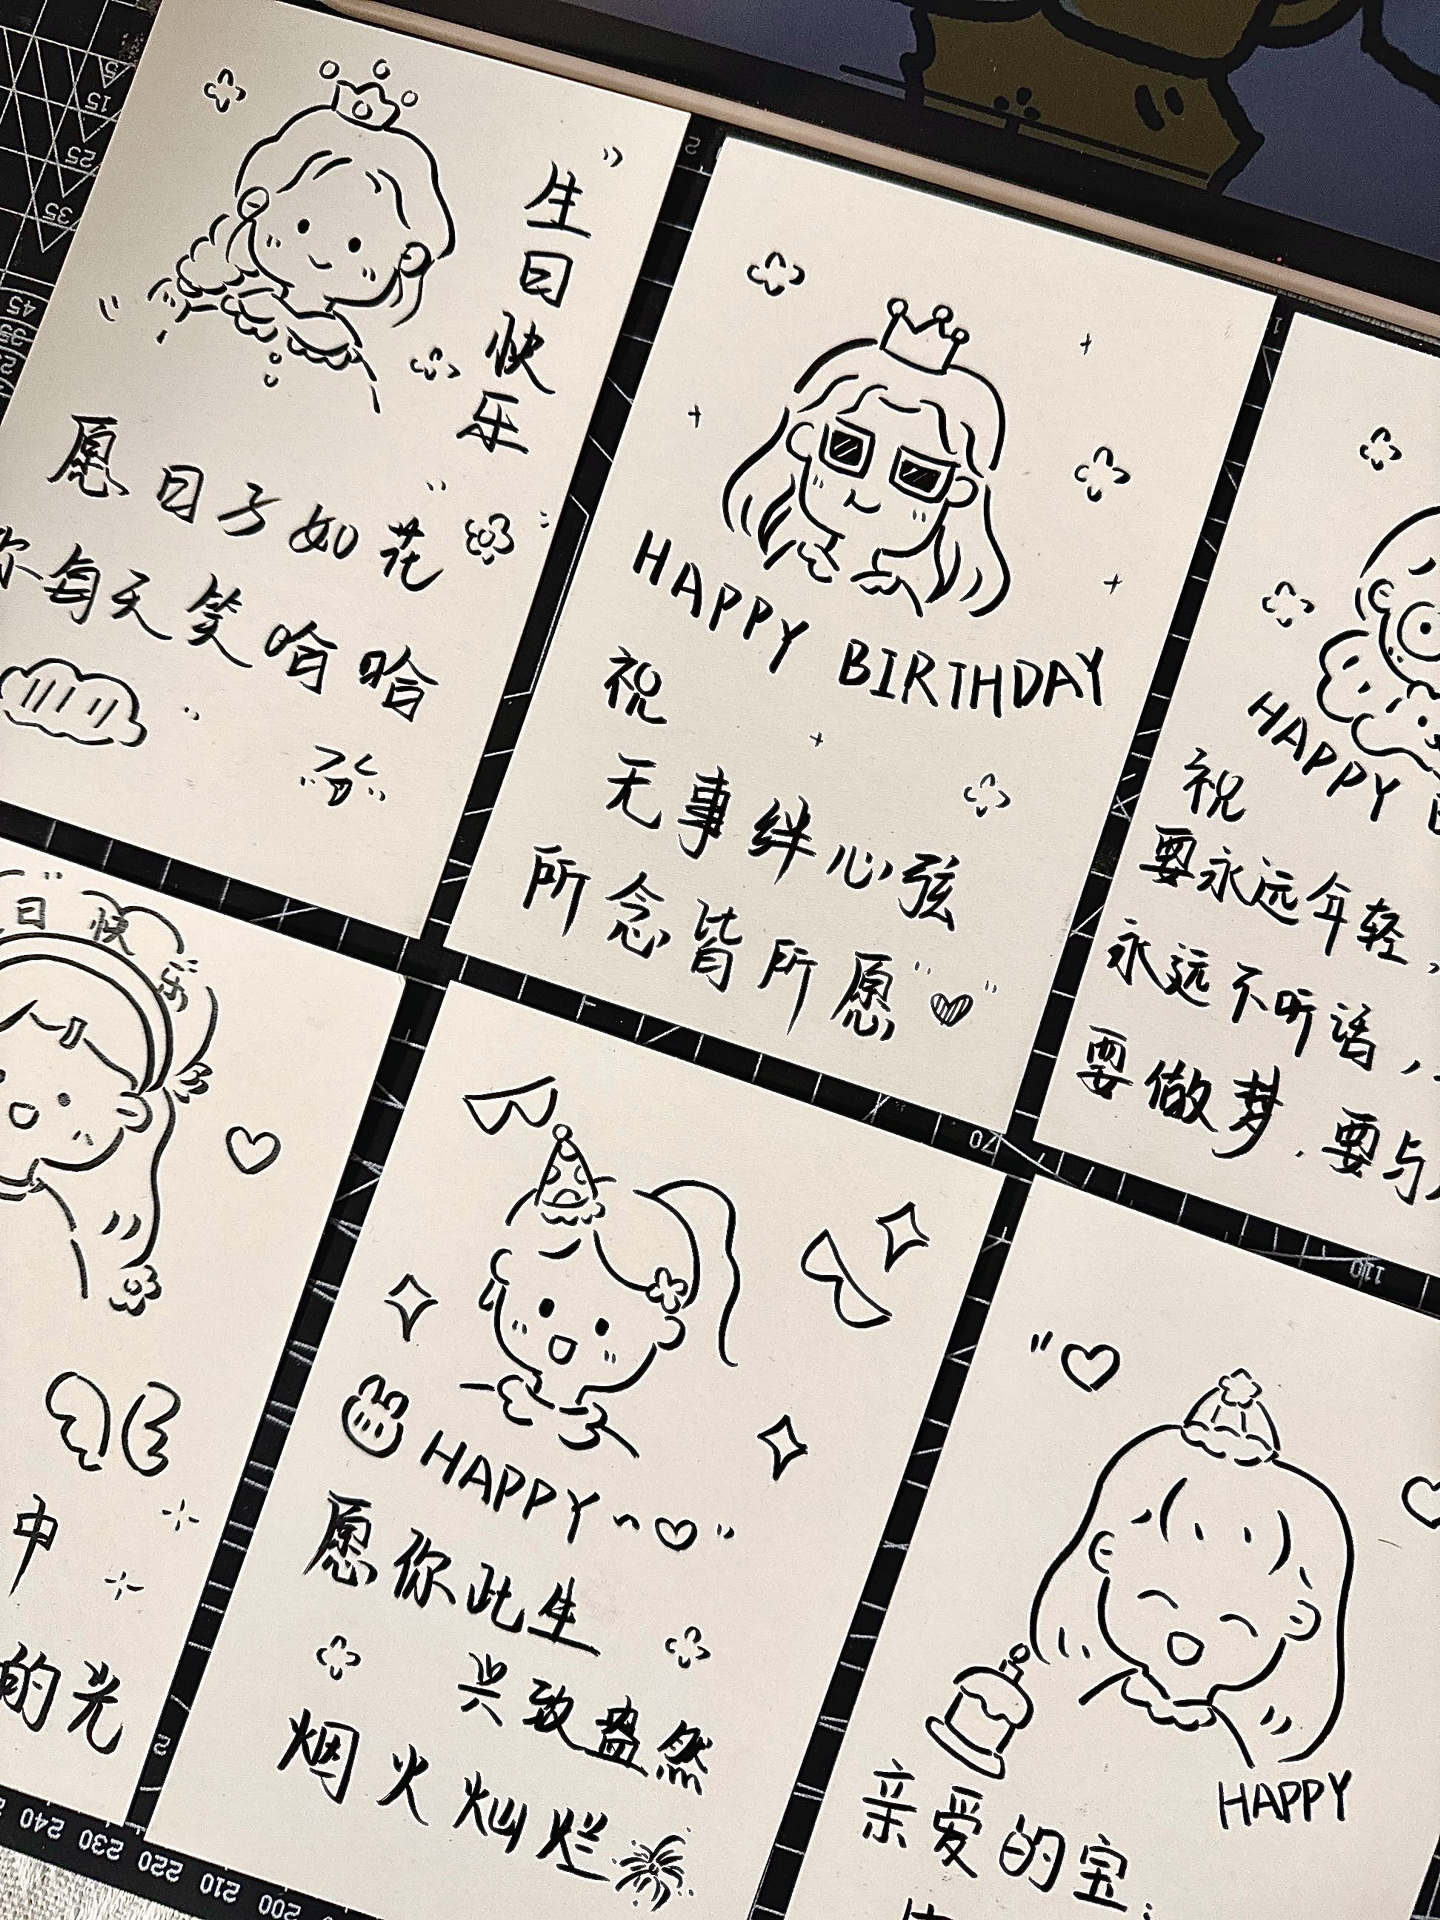 生日快乐
愿日子如花
你每天笑哈哈
HAPPY BIRTHDAY
祝
无事绊心弦
所念皆所愿
HAPPY
祝
要永远年轻，
永远不听话，
要做梦，要与
日快乐
中
的光
HAPPY~
愿你此生
兴致盎然
烟火灿烂
HAPPY
亲爱的宝：
5
15
25
35
45
2
1
70
110
2
240 230 220 210 200